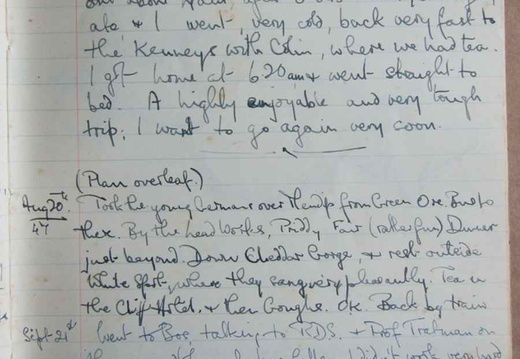 ate & I went, very cold, back very fast to
the Kenneys with Colin, where we had tea.
I got home at 6.20am & went straight to
bed. A highly enjoyable and very tough
trip; I want to go again very soon.
(Plan overleaf.)
Aug 20th Took the young Germans over Mendip from Green Ore. Bus to
47 there. By the Lead Works, Priddy Fair (rather fun) Dinner
just beyond. Down Cheddar Gorge, & rest outside
White Spot, where they sang very pleasantly. Tea in
the Cliff Hotel, & then Goughs. OK. Back by train
Sept 21st Went to Bos, talking to RDS. & Prof Tratman on
very